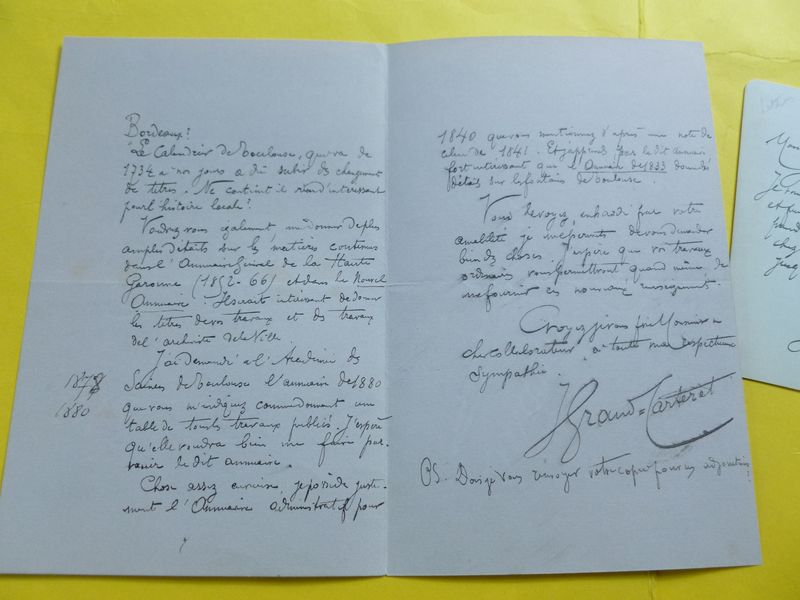 Bordeaux?
Le Calendrier de Toulouse, qui va de
1734 à nos jours a dû subir des changements
de titres. Ne contient il rien d'intéressant
pour l'histoire locale?
Voudrez vous également me donner de plus
amples détails sur les matières contenues
dans l'Annuaire Général de la Haute
Garonne (1852-66) et dans le Nouvel
Annuaire. Il serait intéressant de donner
les titres de vos travaux et des travaux
de l'archiviste de la Ville.
J'ai demandé à l'Académie des
Sciences de Toulouse l'annuaire de 1880
que vous m'indiquez comme donnant une
table de tous les travaux publiés. J'espère
qu'elle voudra bien me faire par-
venir le dit annuaire.
Chose assez curieuse, je possède juste-
ment l'Annuaire administratif pour
1878
1880
1840 que vous mentionnez d'après une note de
celui de 1841. Et j'apprends par le dit annuaire
fort intéressant que l'Annuaire de 1833 donne des
détails sur les fontaines de Toulouse.
Vous le voyez, enhardi par votre
amabilité je me permets de vous demander
bien des choses. J'espère que vos travaux
ordinaires vous permettront quand même de
me fournir ces nouveaux renseignements.
Croyez je vous prie Monsieur et
cher collaborateur, à toute ma respectueuse
sympathie.
J Grand=Carteret
PS. Dois-je vous renvoyer votre copie pour les adjonctions?